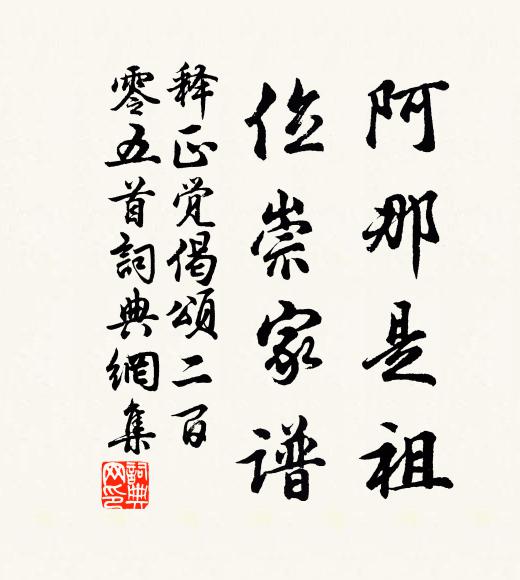 阿那是祖
俭崇家谱
释正觉偈颂二百
零五首詞典網集
詞典
网印